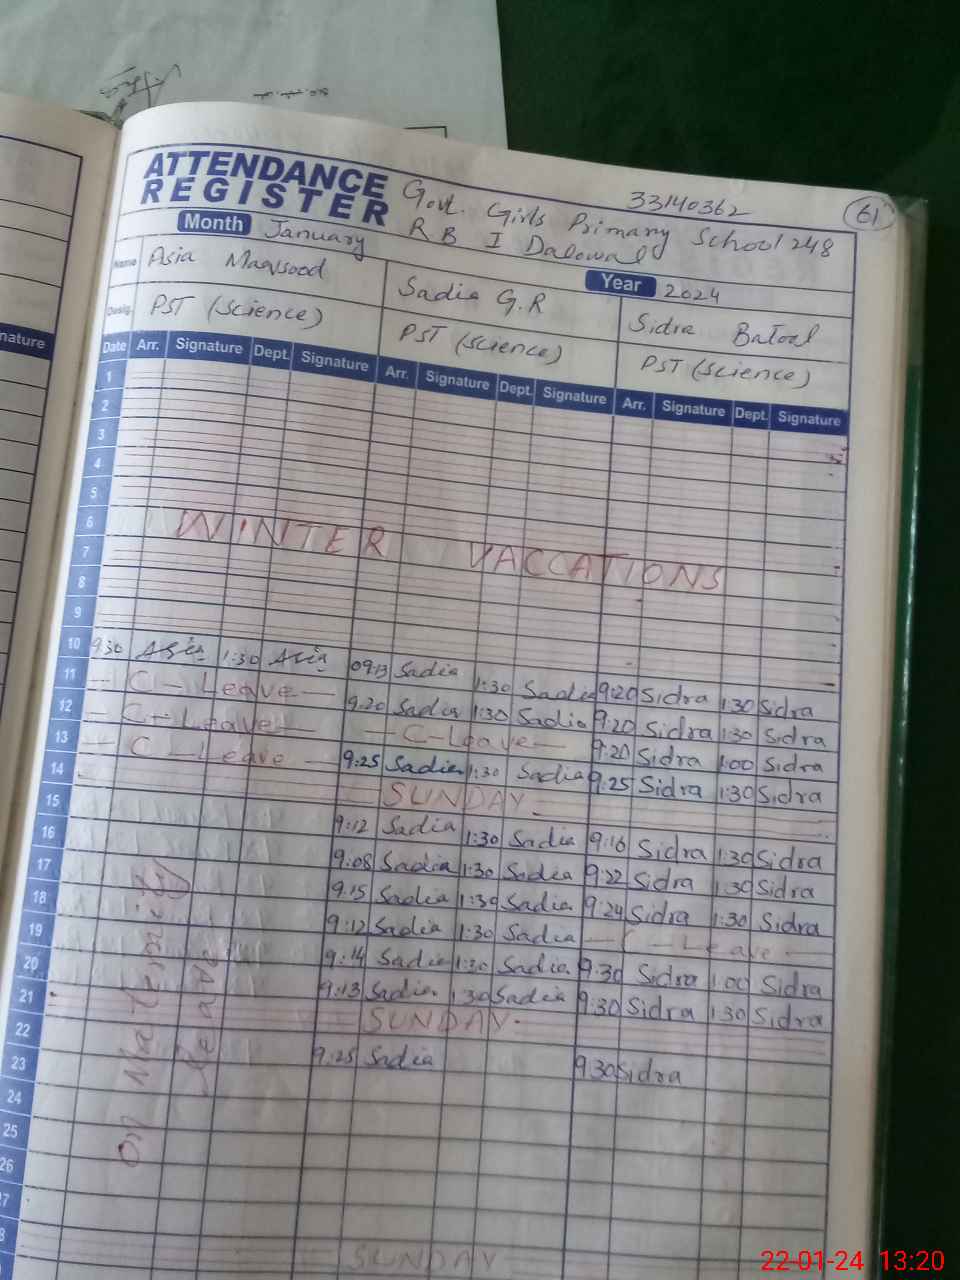 ATTENDANCE REGISTER
Govt. Girls Primary School 248
33140362
61
RB I Dalowal
Month January
Year 2024
Name Asia Maqsood Sadia G.R Sidra Batool
Desig. PST (Science) PST (Science) PST (Science)
nature
Date Arr. Signature Dept. Signature Arr. Signature Dept. Signature Arr. Signature Dept. Signature
1
2
3
4
5
6
WINTER VACCATIONS
7
8
9
10 9:30 Asia 1:30 Asia 09:13 Sadia 1:30 Sadia 9:20 Sidra 1:30 Sidra
11 C-Leave 9:20 Sadia 1:30 Sadia 9:20 Sidra 1:30 Sidra
12 C-Leave C-Leave 9:20 Sidra 1:00 Sidra
13 C-Leave 9:25 Sadia 1:30 Sadia 9:25 Sidra 1:30 Sidra
14 SUNDAY
15 9:12 Sadia 1:30 Sadia 9:16 Sidra 1:30 Sidra
16 9:08 Sadia 1:30 Sadia 9:22 Sidra 1:30 Sidra
17 9:15 Sadia 1:30 Sadia 9:24 Sidra 1:30 Sidra
18 9:12 Sadia 1:30 Sadia C-Leave
19 9:14 Sadia 1:30 Sadia 9:30 Sidra 1:00 Sidra
20 9:13 Sadia 1:30 Sadia 9:30 Sidra 1:30 Sidra
21 SUNDAY
22 9:25 Sadia 9:30 Sidra
23
24
25
26
27
SUNDAY
on Maternity
Leave
22-01-24 13:20